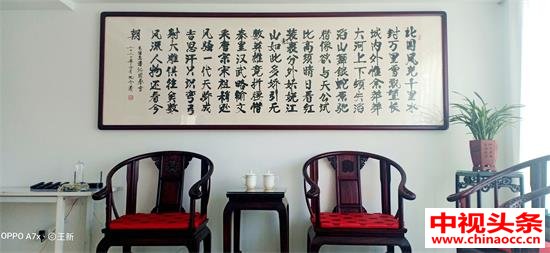 北国風光千里冰
封万里雪飘望長
城内外惟余莽莽
大河上下顿失滔
滔山舞銀蛇原驰
蜡像欲与天公試
比高須晴日看红
装素裹分外妖娆江
山如此多娇引无
数英雄竞折腰惜
秦皇汉武略输文
采唐宗宋祖稍逊
風骚一代天骄成
吉思汗只识弯弓
射大雕俱往矣数
風流人物還看今
朝
OPPO A7x ©王新
中视头条
www.chinaocc.cn